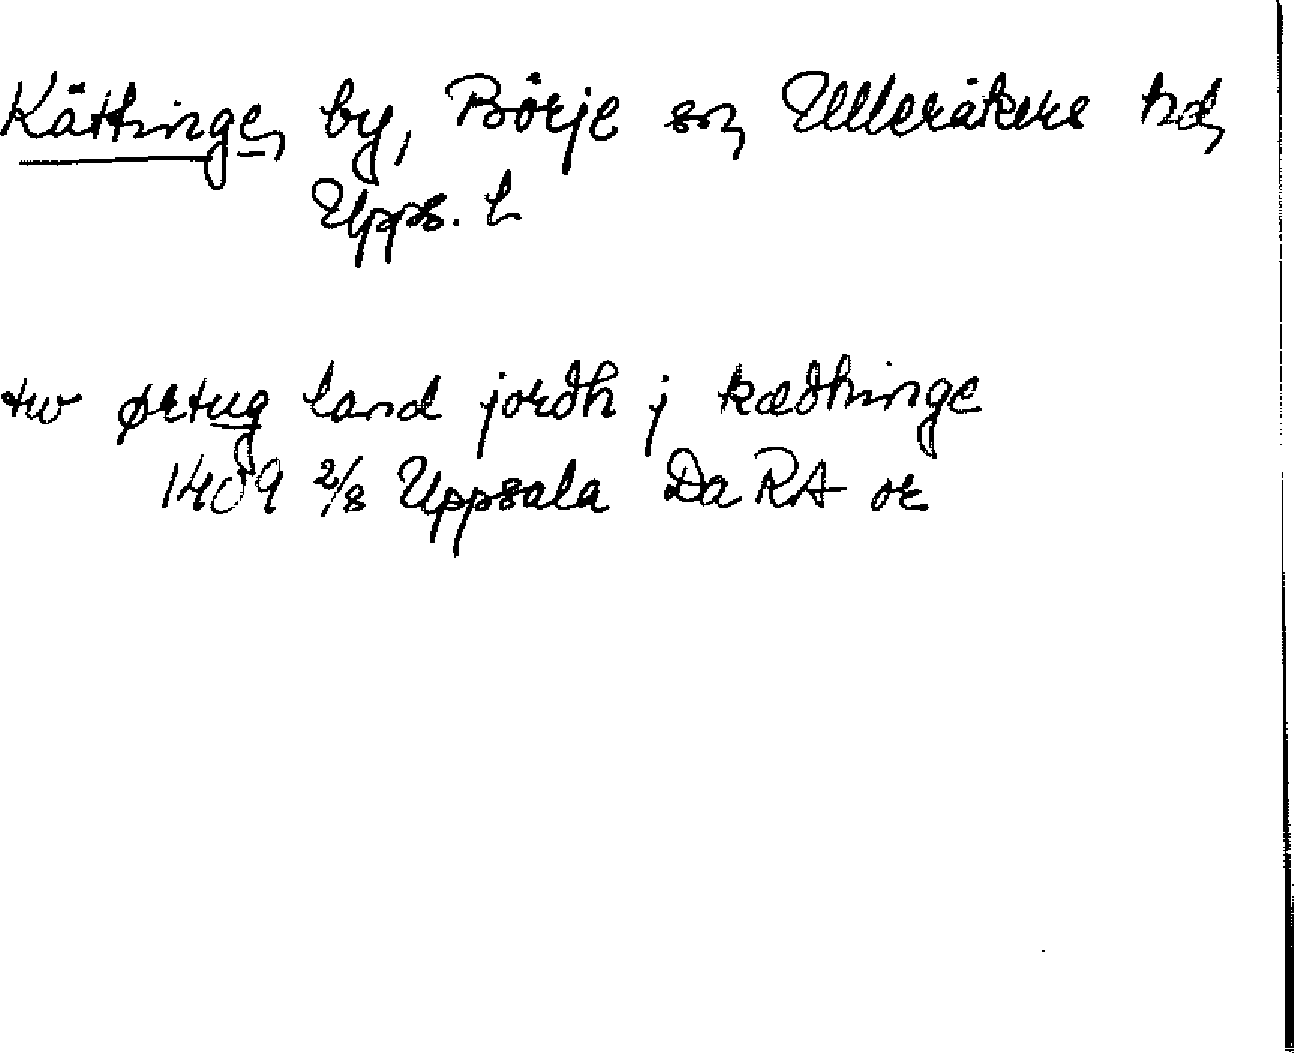 Kättinge, by, Börje sn, Ulleråkers hd,
Upps. l
tw ørtug land jordh j kædhinge
1409 2/8 Uppsala Da RA or